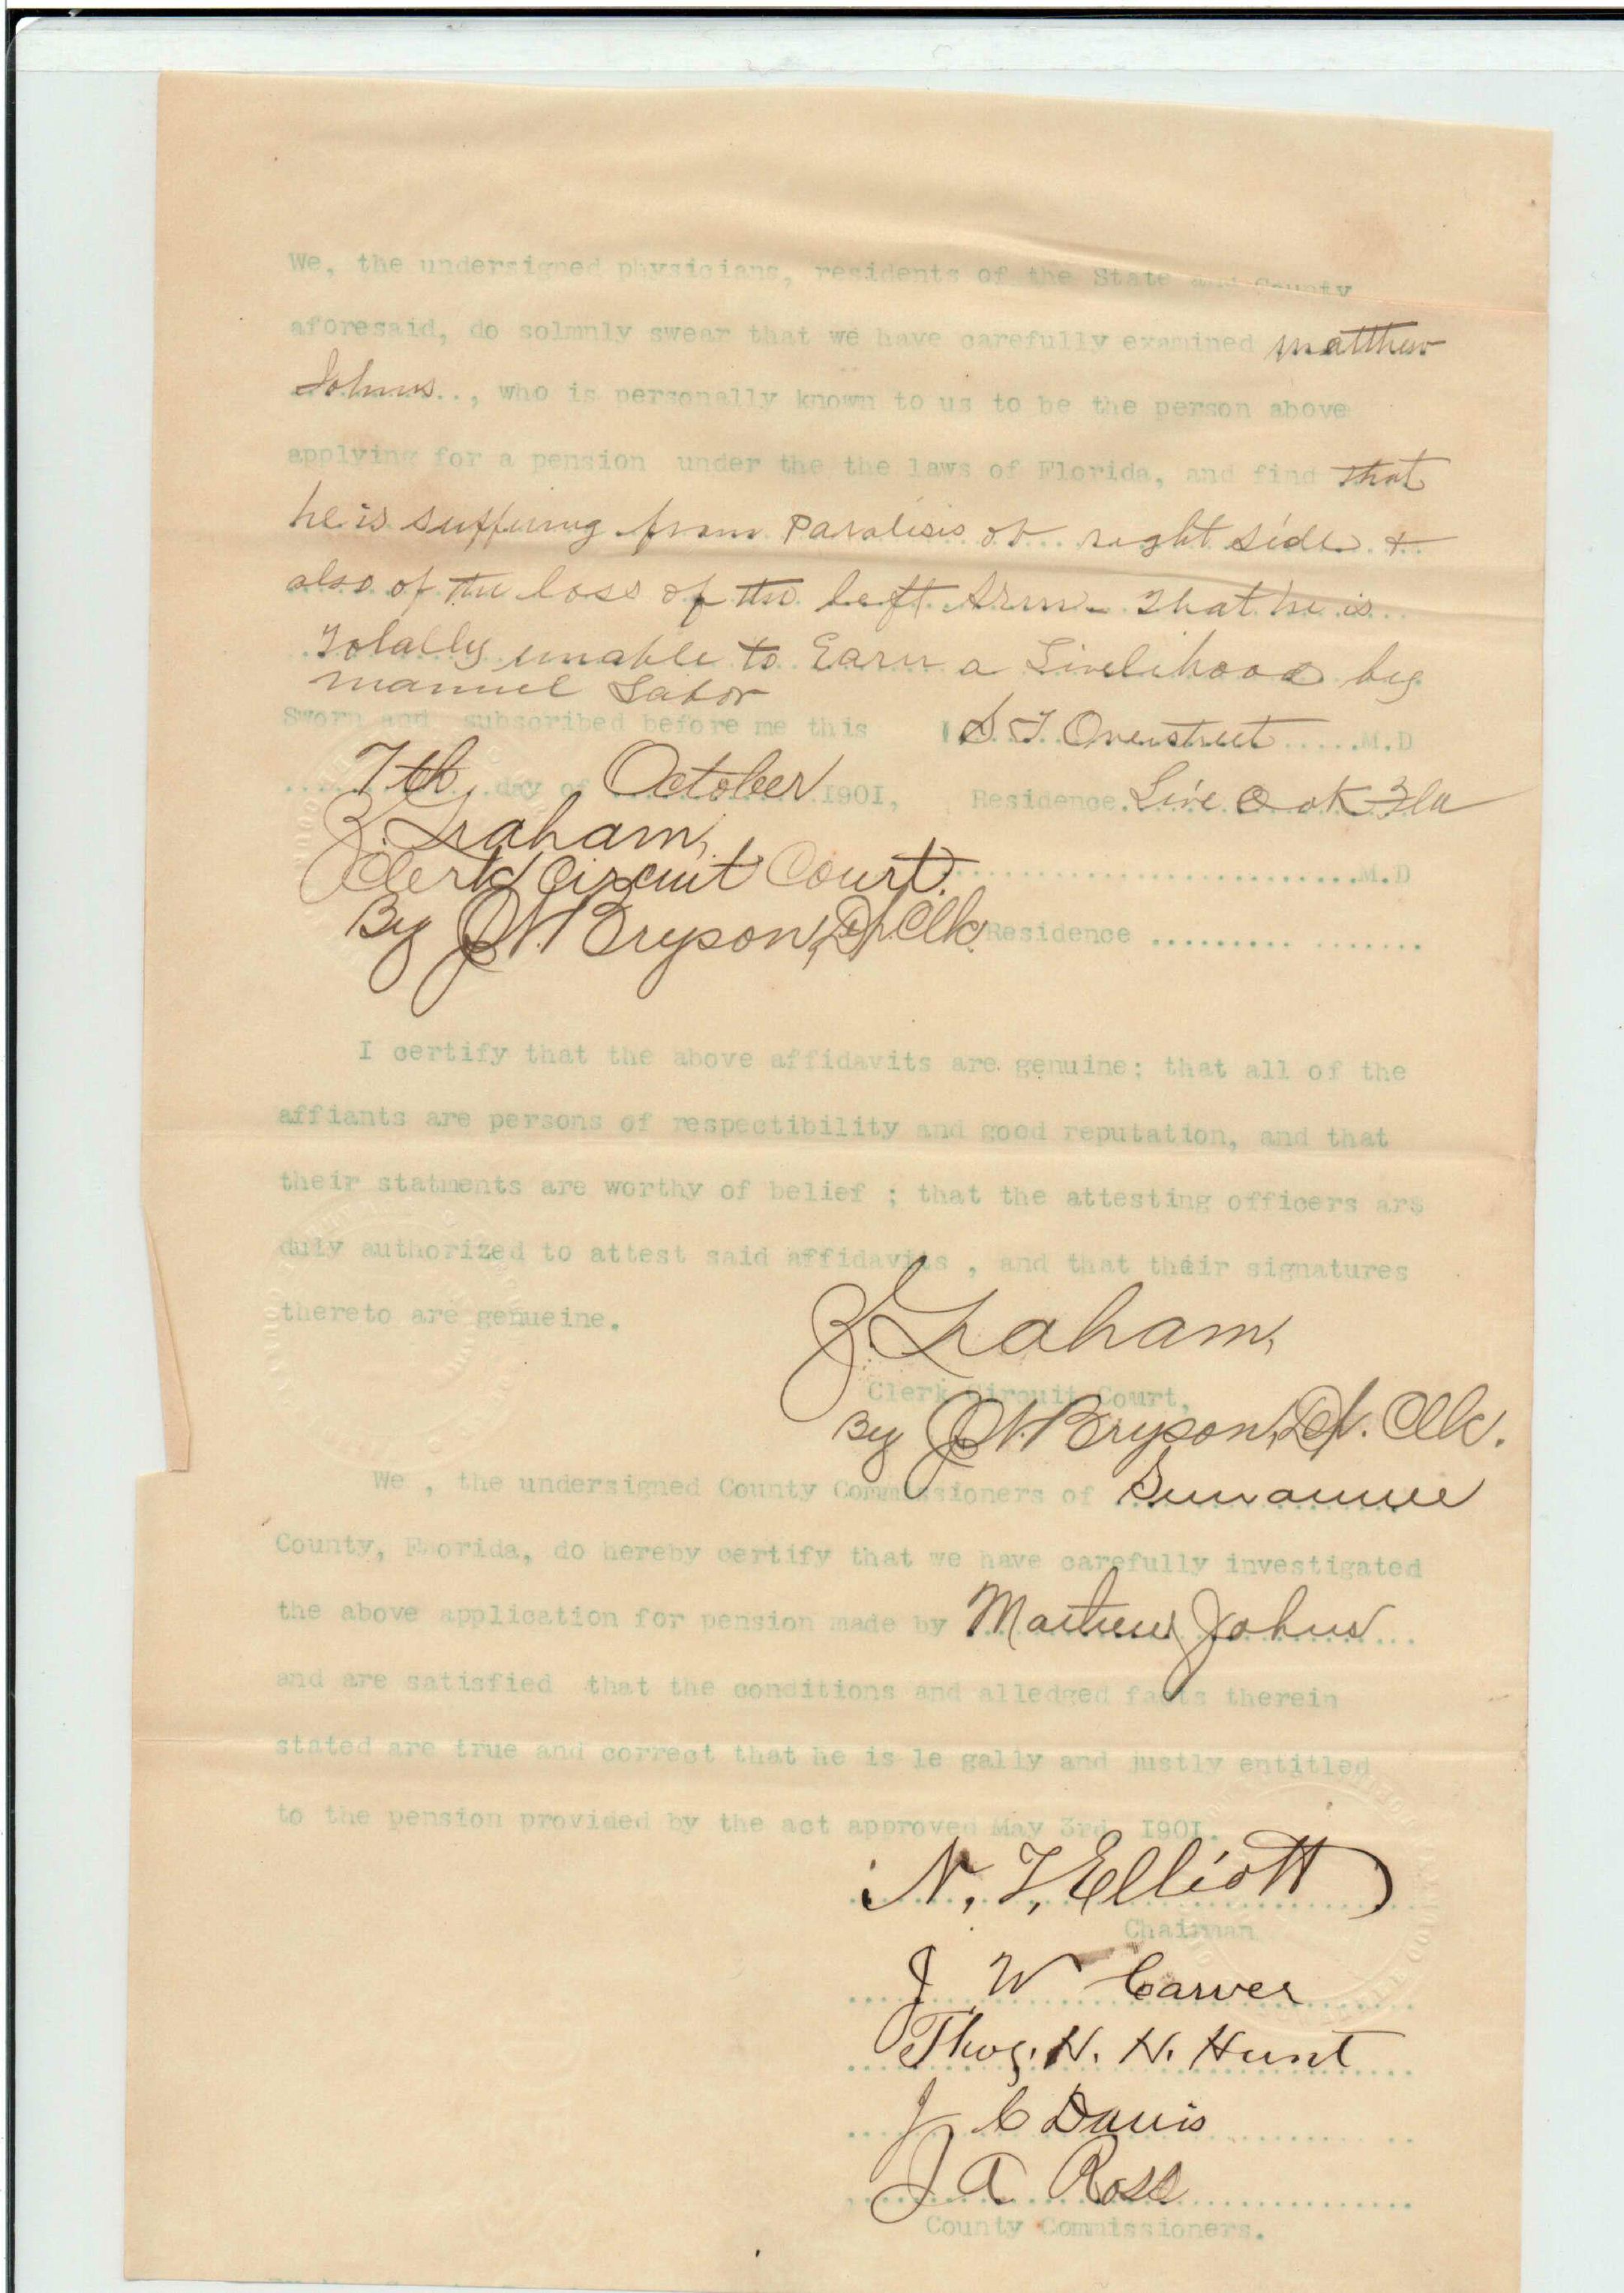 We, the undersigned physicians, residents of the State and County
aforesaid, do solmnly swear that we have carefully examined Matthew
Johns.., who is personally known to us to be the person above
applying for a pension under the the laws of Florida, and find that
he is suffering from Paralisis of right side &
also of the loss of the left Arm - That he is
Totally unable to Earn a Livelihood by
manuel Labor
Sworn and subscribed before me this S T Overstreet.....M.D
7th day of October 1901, Residence. Live Oak Fla
Z. Graham,
Clerk Circuit Court. ........................M.D
By J N. Bryson, Dp. Clk. Residence ......... .......
I certify that the above affidavits are genuine; that all of the
affiants are persons of respectibility and good reputation, and that
their statments are worthy of belief ; that the attesting officers ar$
duly authorized to attest said affidavits , and that their signatures
thereto are genueine.
Z. Graham,
Clerk Circuit Court,
By J N. Bryson, Dp. Clk.
We , the undersigned County Commissioners of Suwannee
County, Florida, do hereby certify that we have carefully investigated
the above application for pension made by Mathew Johns
and are satisfied that the conditions and alledged facts therein
stated are true and correct that he is le gally and justly entitled
to the pension provided by the act approved May 3rd, 1901.
N. T. Elliott
Chairman
J W Carver
Thos. N. N. Hunt
J C Davis
J A Ross
County Commissioners.